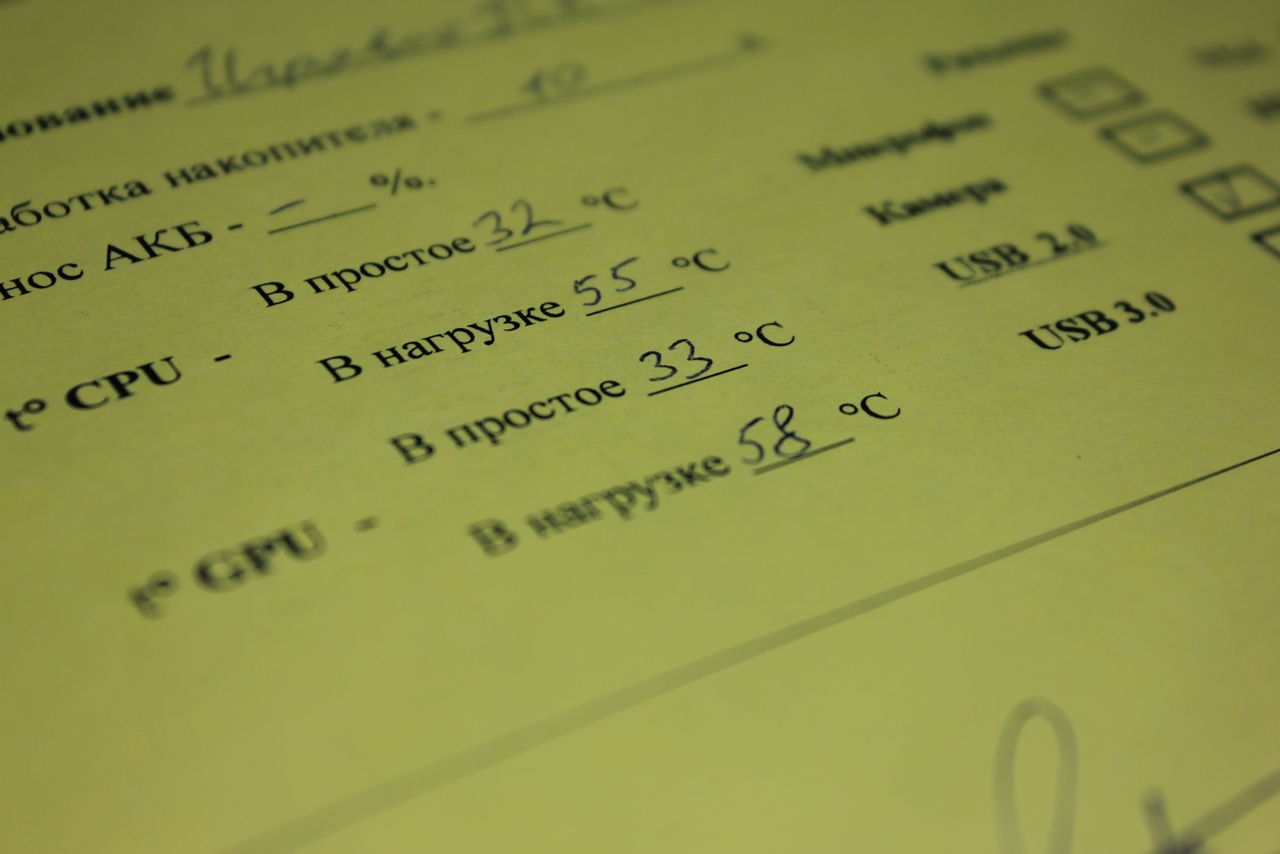 Игровой ПК
аботка накопителя - 10
нос АКБ - – %.
t° CPU - В простое 32 °C
В нагрузке 55 °C
t° GPU - В простое 33 °C
В нагрузке 58 °C
Микрофон
Камера
USB 2.0
USB 3.0